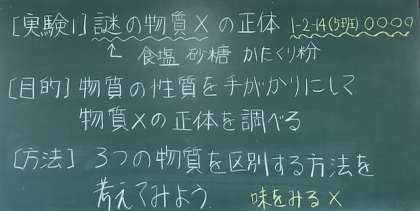 [実験1] 謎の物質Xの正体 1-2-14(5班) 〇〇〇〇
↑ 食塩 砂糖 かたくり粉
[目的] 物質の性質を手がかりにして
物質Xの正体を調べる
[方法] 3つの物質を区別する方法を
考えてみよう. 味をみる×